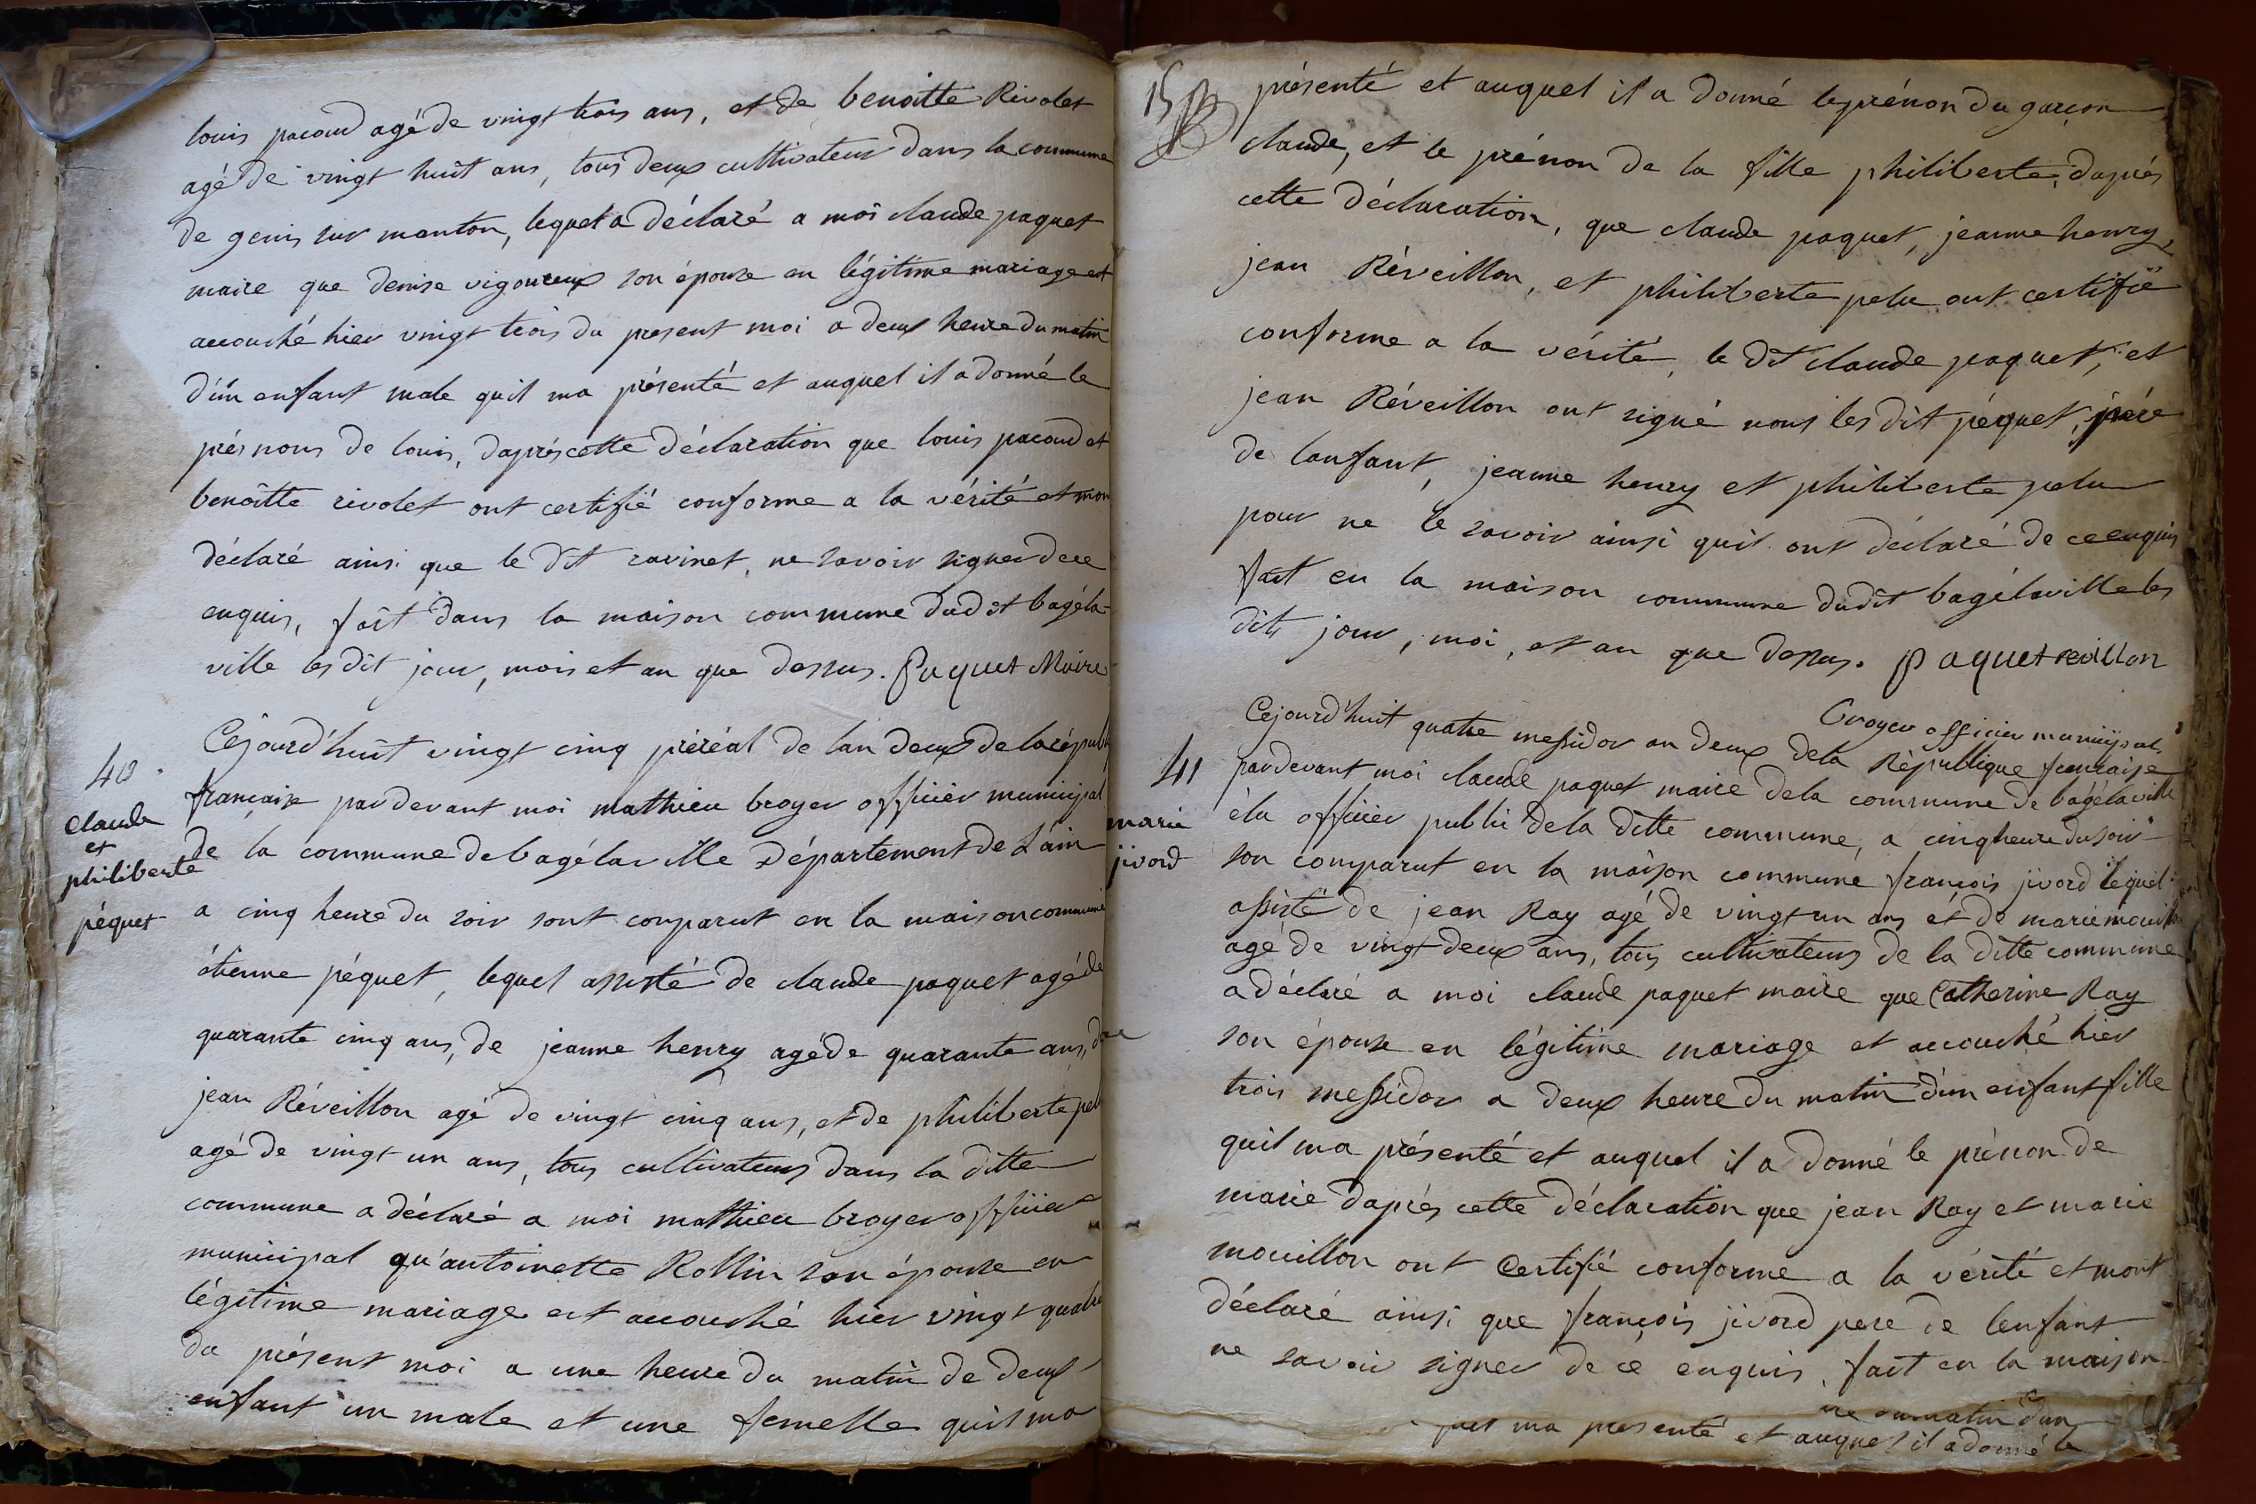 louis pacoud agé de vingt trois ans, et de benoitte Rivolet
agé de vingt huit ans, tous deux cultivateur dans la commune
de genis sur manton, lequel a déclaré a moi claude paquet
maire que denise vigoureux son épouse en légitime mariage est
accouché hier vingt trois du present moi a deux heure du matin
d'un enfant male quil ma présenté et auquel il a donné le
prés noms de louis, daprés cette déclaration que louis pacoud et
benoitte rivolet ont certifié conforme a la vérité et mon
déclaré ainsi que le dit ravinet, ne savoir signer de ce
enquis, fait dans la maison commune dudit bagéla-
ville les dit jour, mois et an que dessus. Paquet Maire
40
claude
et
philiberte
péquet
Cejourd'huit vingt cinq préréal de lan deux de la répub
française pardevant moi mathieu broyer officièr municipal
de la commune de bagélaville Département de L'ain
a cinq heure du soir sont comparut en la maison commune
étienne péquet, lequel assisté de claude paquet agé de
quarante cinq ans, de jeanne henry agé de quarante ans, de
jean Réveillon agé de vingt cinq ans, et de philiberte pelu
agé de vingt un ans, tous cultivateurs dans la ditte
commune a déclaré a moi mathieu broyer officier
municipal qu'antoinette Rollin son épouse en
légitime mariage est accouché hier vingt quatre
du présent moi a une heure du matin de deux
enfant un male et une femelle quil ma
15
présenté et auquel il a donné le prénon du garçon
claude, et le prénon de la fille philiberte, daprés
cette déclaration, que claude paquet, jeanne henry,
jean Réveillon, et philiberte pelu ont certifié
conforme a la vérité, le dit claude paquet, et
jean Réveillon ont signé nous les dit péquet, père
de lanfant, jeanne henry et philiberte pelu
pour ne le savoir ainsi quil ont déclaré de ce enquis
fait en la maison commune dudit bagélaville les
dits jour, moi, et an que dessus. Paquet reveillon
Broyer officier municipal
41
marie
jivord
Cejourd'huit quatre messidor an deux dela République française
pardevant moi claude paquet maire dela commune de bagélaville
élu officièr publi dela ditte commune, a cinq heure du soir
son comparut en la maison commune françois jivord lequel
assisté de jean Ray agé de vingt un ans et de marie mouillon
agé de vingt deux ans, tous cultivateurs de la ditte commune
a déclaré a moi claude paquet maire que Catherine Ray
son épouse en légitime mariage et accouché hier
trois messidor a deux heure du matin d'un enfant fille
quil ma présenté et auquel il a donné le prénon de
marie daprés cette déclaration que jean Ray et marie
mouillon ont Certifié conforme a la vérité et mont
déclaré ainsi que françois jivord pere de lenfant
ne savoir signer de ce enquis, fait en la maison
du matin d'un
ma presenté et auquel il a donné le